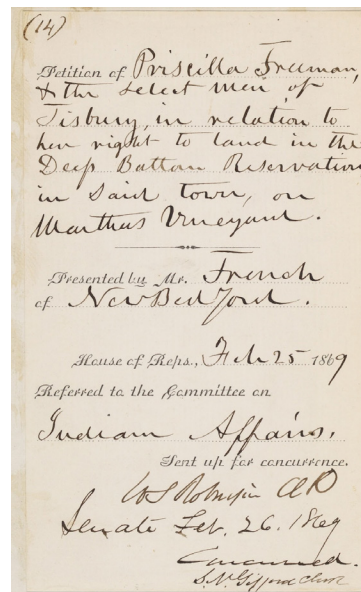 (14)
Petition of Priscilla Freeman,
& the select men of
Tisbury, in relation to
her right to land in the
Deep Bottom Reservation
in said town, on
Marthas Vineyard.
Presented by Mr. French
of New Bedford.
House of Reps., Feb 25 1869
Referred to the Committee on
Indian Affairs.
Sent up for concurrence.
W S Robinson Clk
Senate Feb. 26. 1869
Concurred.
S. N. Gifford Clerk